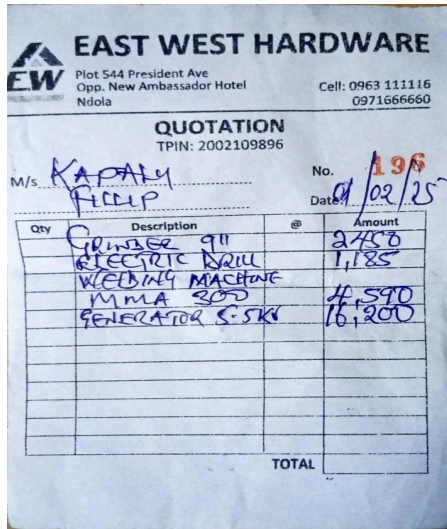 EW
EAST WEST HARDWARE
Plot 544 President Ave
Opp. New Ambassador Hotel
Ndola
Cell: 0963 111116
0971666660
QUOTATION
TPIN: 2002109896
M/s KAPALY
FILLIP
No. 196
Date: 01/02/25
Qty Description @ Amount
GRINDER 9" 2450
ELECTRIC DRILL 1,185
WELDING MACHINE
MMA 300 4,590
GENERATOR 5.5KV 16,200
TOTAL